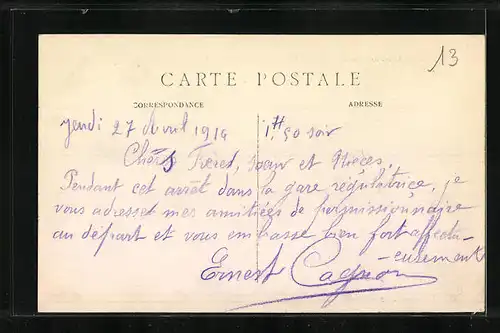 13
CARTE POSTALE
CORRESPONDANCE ADRESSE
jeudi 27 Avril 1916 1H 50 soir
Chers Frères, soeur et Nièces.
Pendant cet arrêt dans la gare régulatrice, je
vous adresse mes amitiées de permissionnaire
au départ et vous embrasse bien fort affectu-
-eusement
Ernest Cagnon